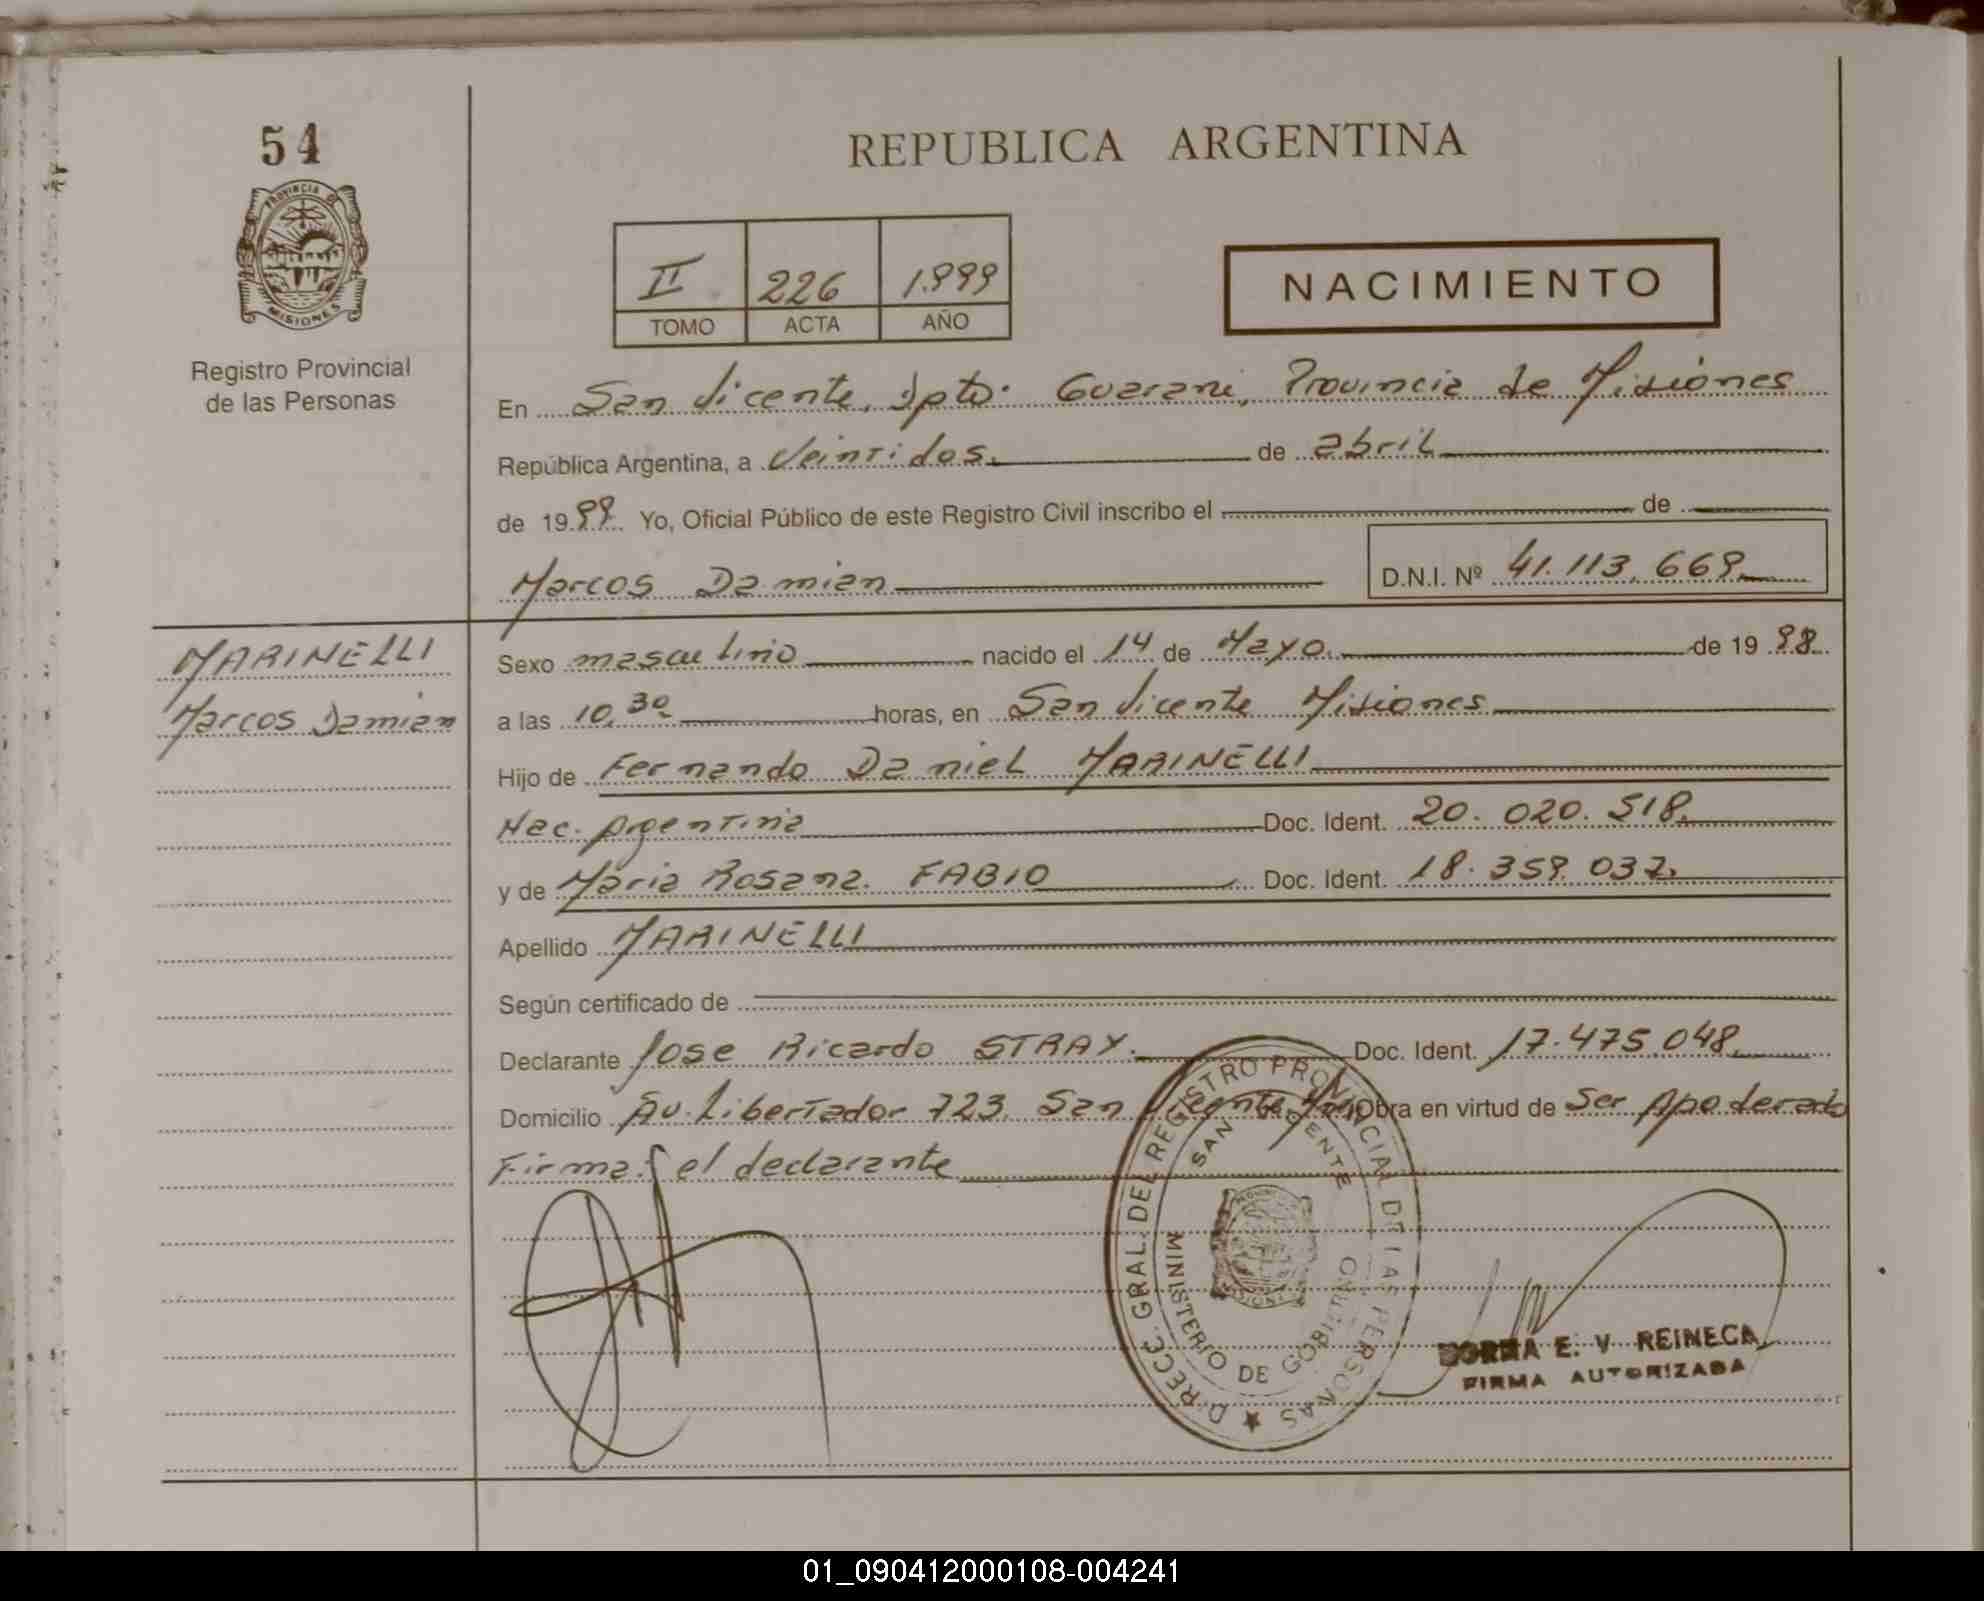 54
REPUBLICA ARGENTINA
PROVINCIA DE
MISIONES
Registro Provincial
de las Personas
II 226 1.999
TOMO ACTA AÑO
NACIMIENTO
En San Vicente, Dpto. Guarani, Provincia de Misiones
República Argentina, a Veintidos. de abril
de 1999 Yo, Oficial Público de este Registro Civil inscribo el de
Marcos Damian D.N.I. Nº 41.113.669
MARINELLI
Marcos Damian
Sexo masculino nacido el 14 de Mayo. de 1998.
a las 10,30 horas, en San Vicente Misiones
Hijo de Fernando Daniel MARINELLI
Nac. Argentina Doc. Ident. 20.020.518.
y de Maria Rosana FABIO Doc. Ident. 18.359.037.
Apellido MARINELLI
Según certificado de
Declarante Jose Ricardo STRAY. Doc. Ident. 17.475.048.
Domicilio Av. Libertador 723. San Vicente, Obra en virtud de Ser Apoderado
Firma: el declarante
DIRECC. GRAL. DEL REGISTRO PROVINCIAL DE LAS PERSONAS
SAN VICENTE
MINISTERIO DE GOBIERNO
E. V. REINECA
FIRMA AUTORIZADA
01_090412000108-004241